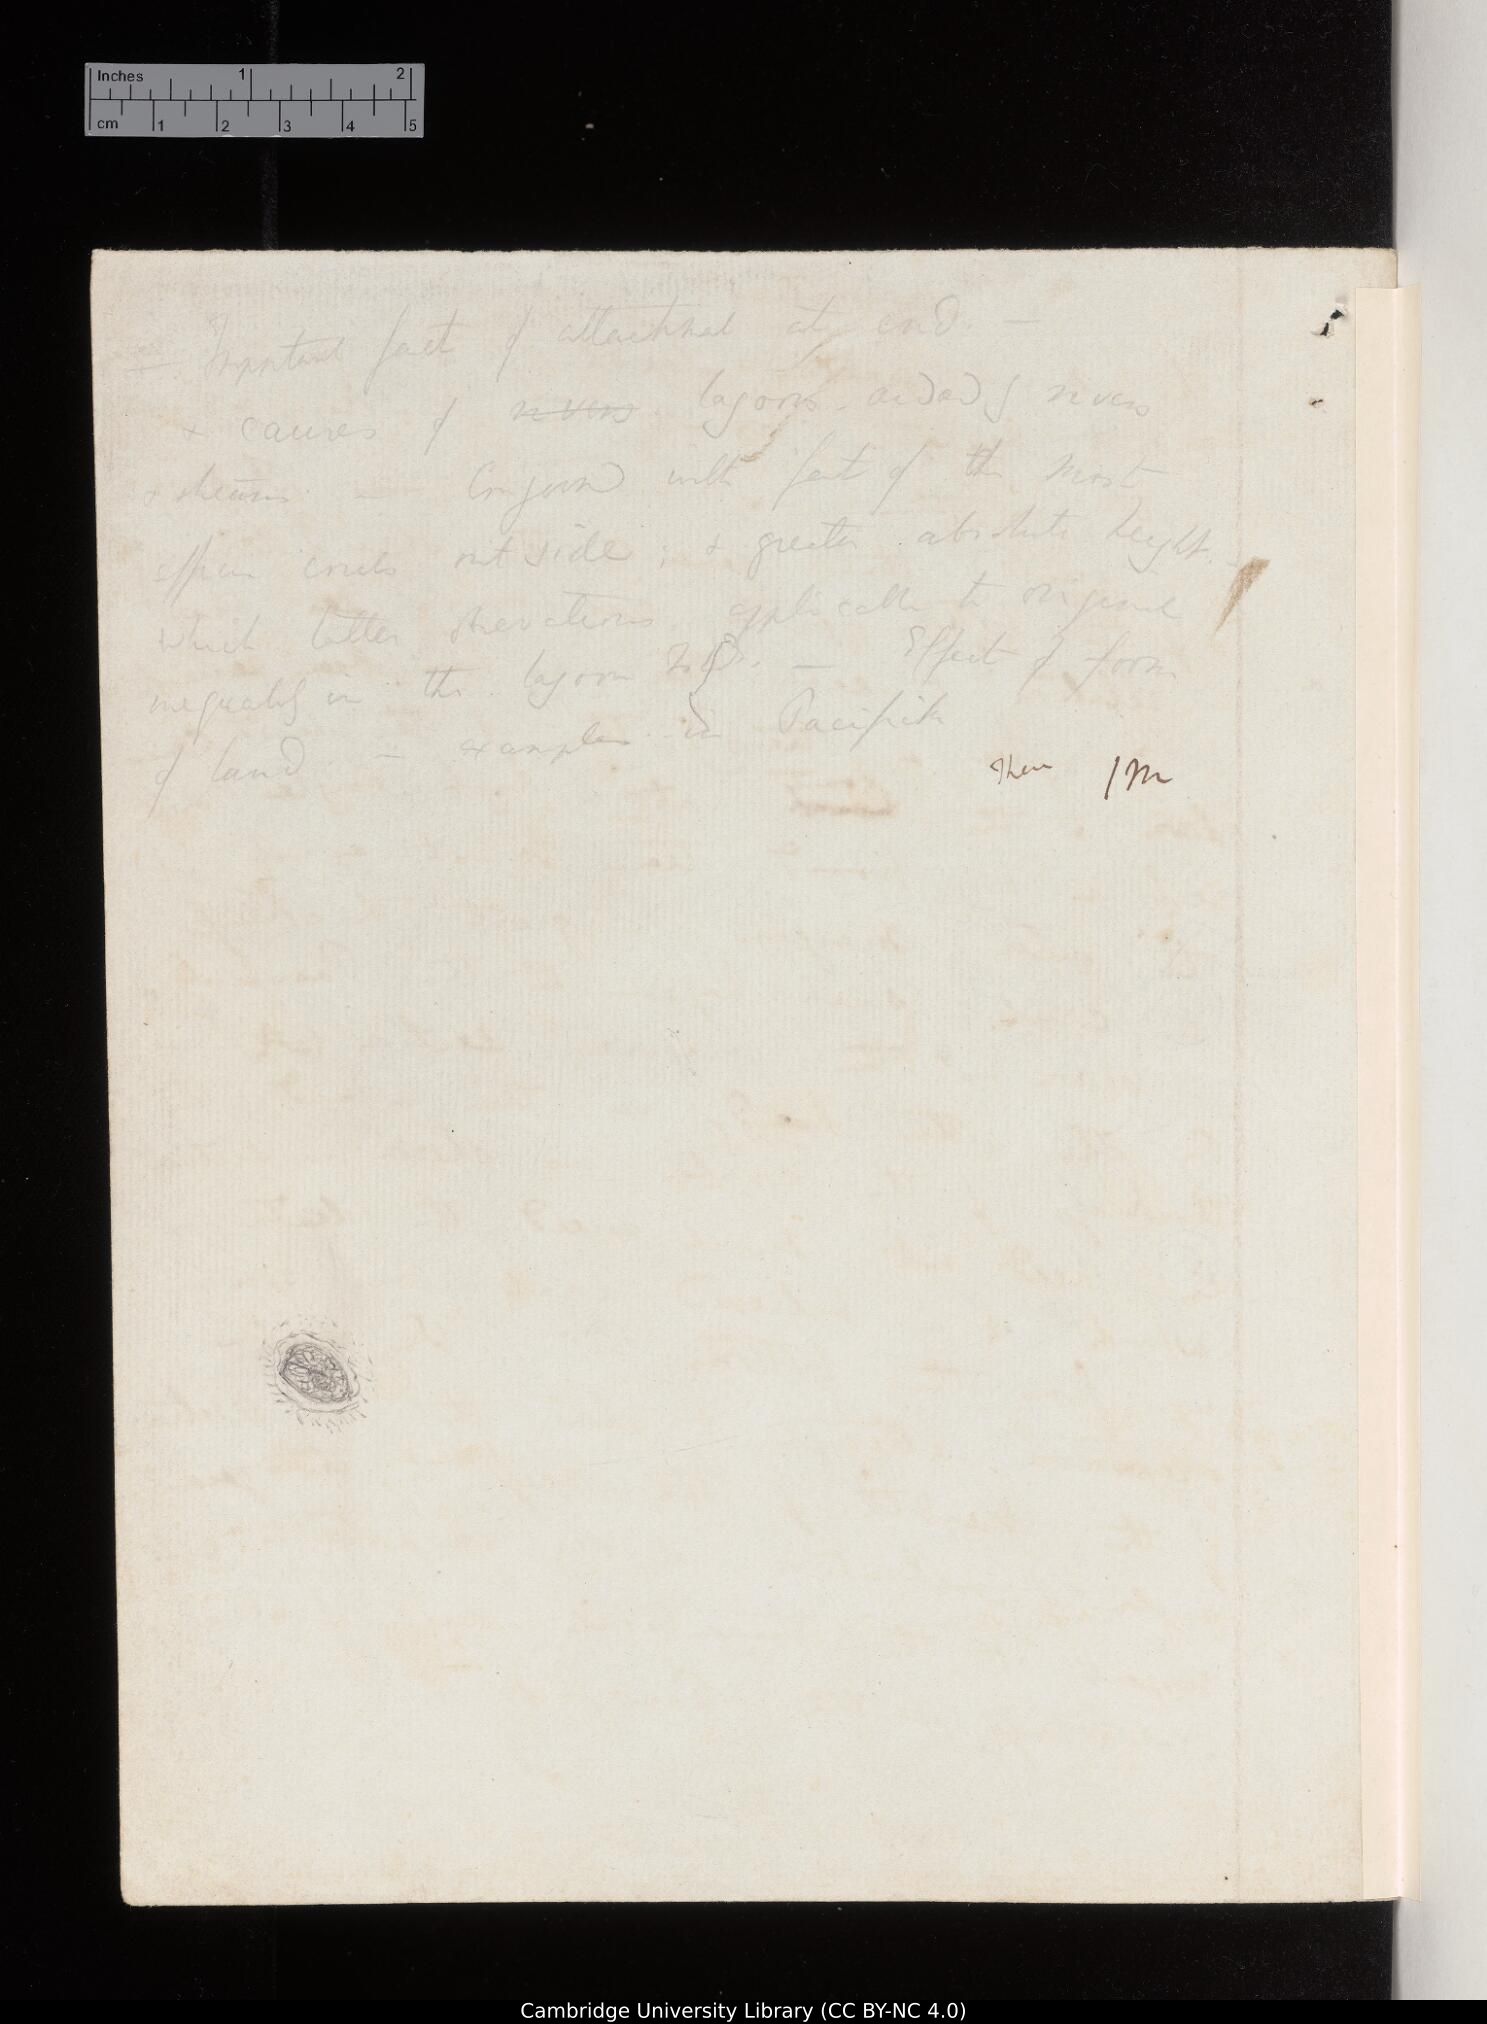 Inches 1 2
cm 1 2 3 4 5
— Important fact of attachment at end. —
& causes of rivers lagoons. aided by rivers
& streams — Conjoined with fact of the most
corals outside; & greater absolute height.
which latter observations applicable to original
inequality in the lagoon — Effect of form
of land. — examples in Pacifick
1 M
Cambridge University Library (CC BY-NC 4.0)